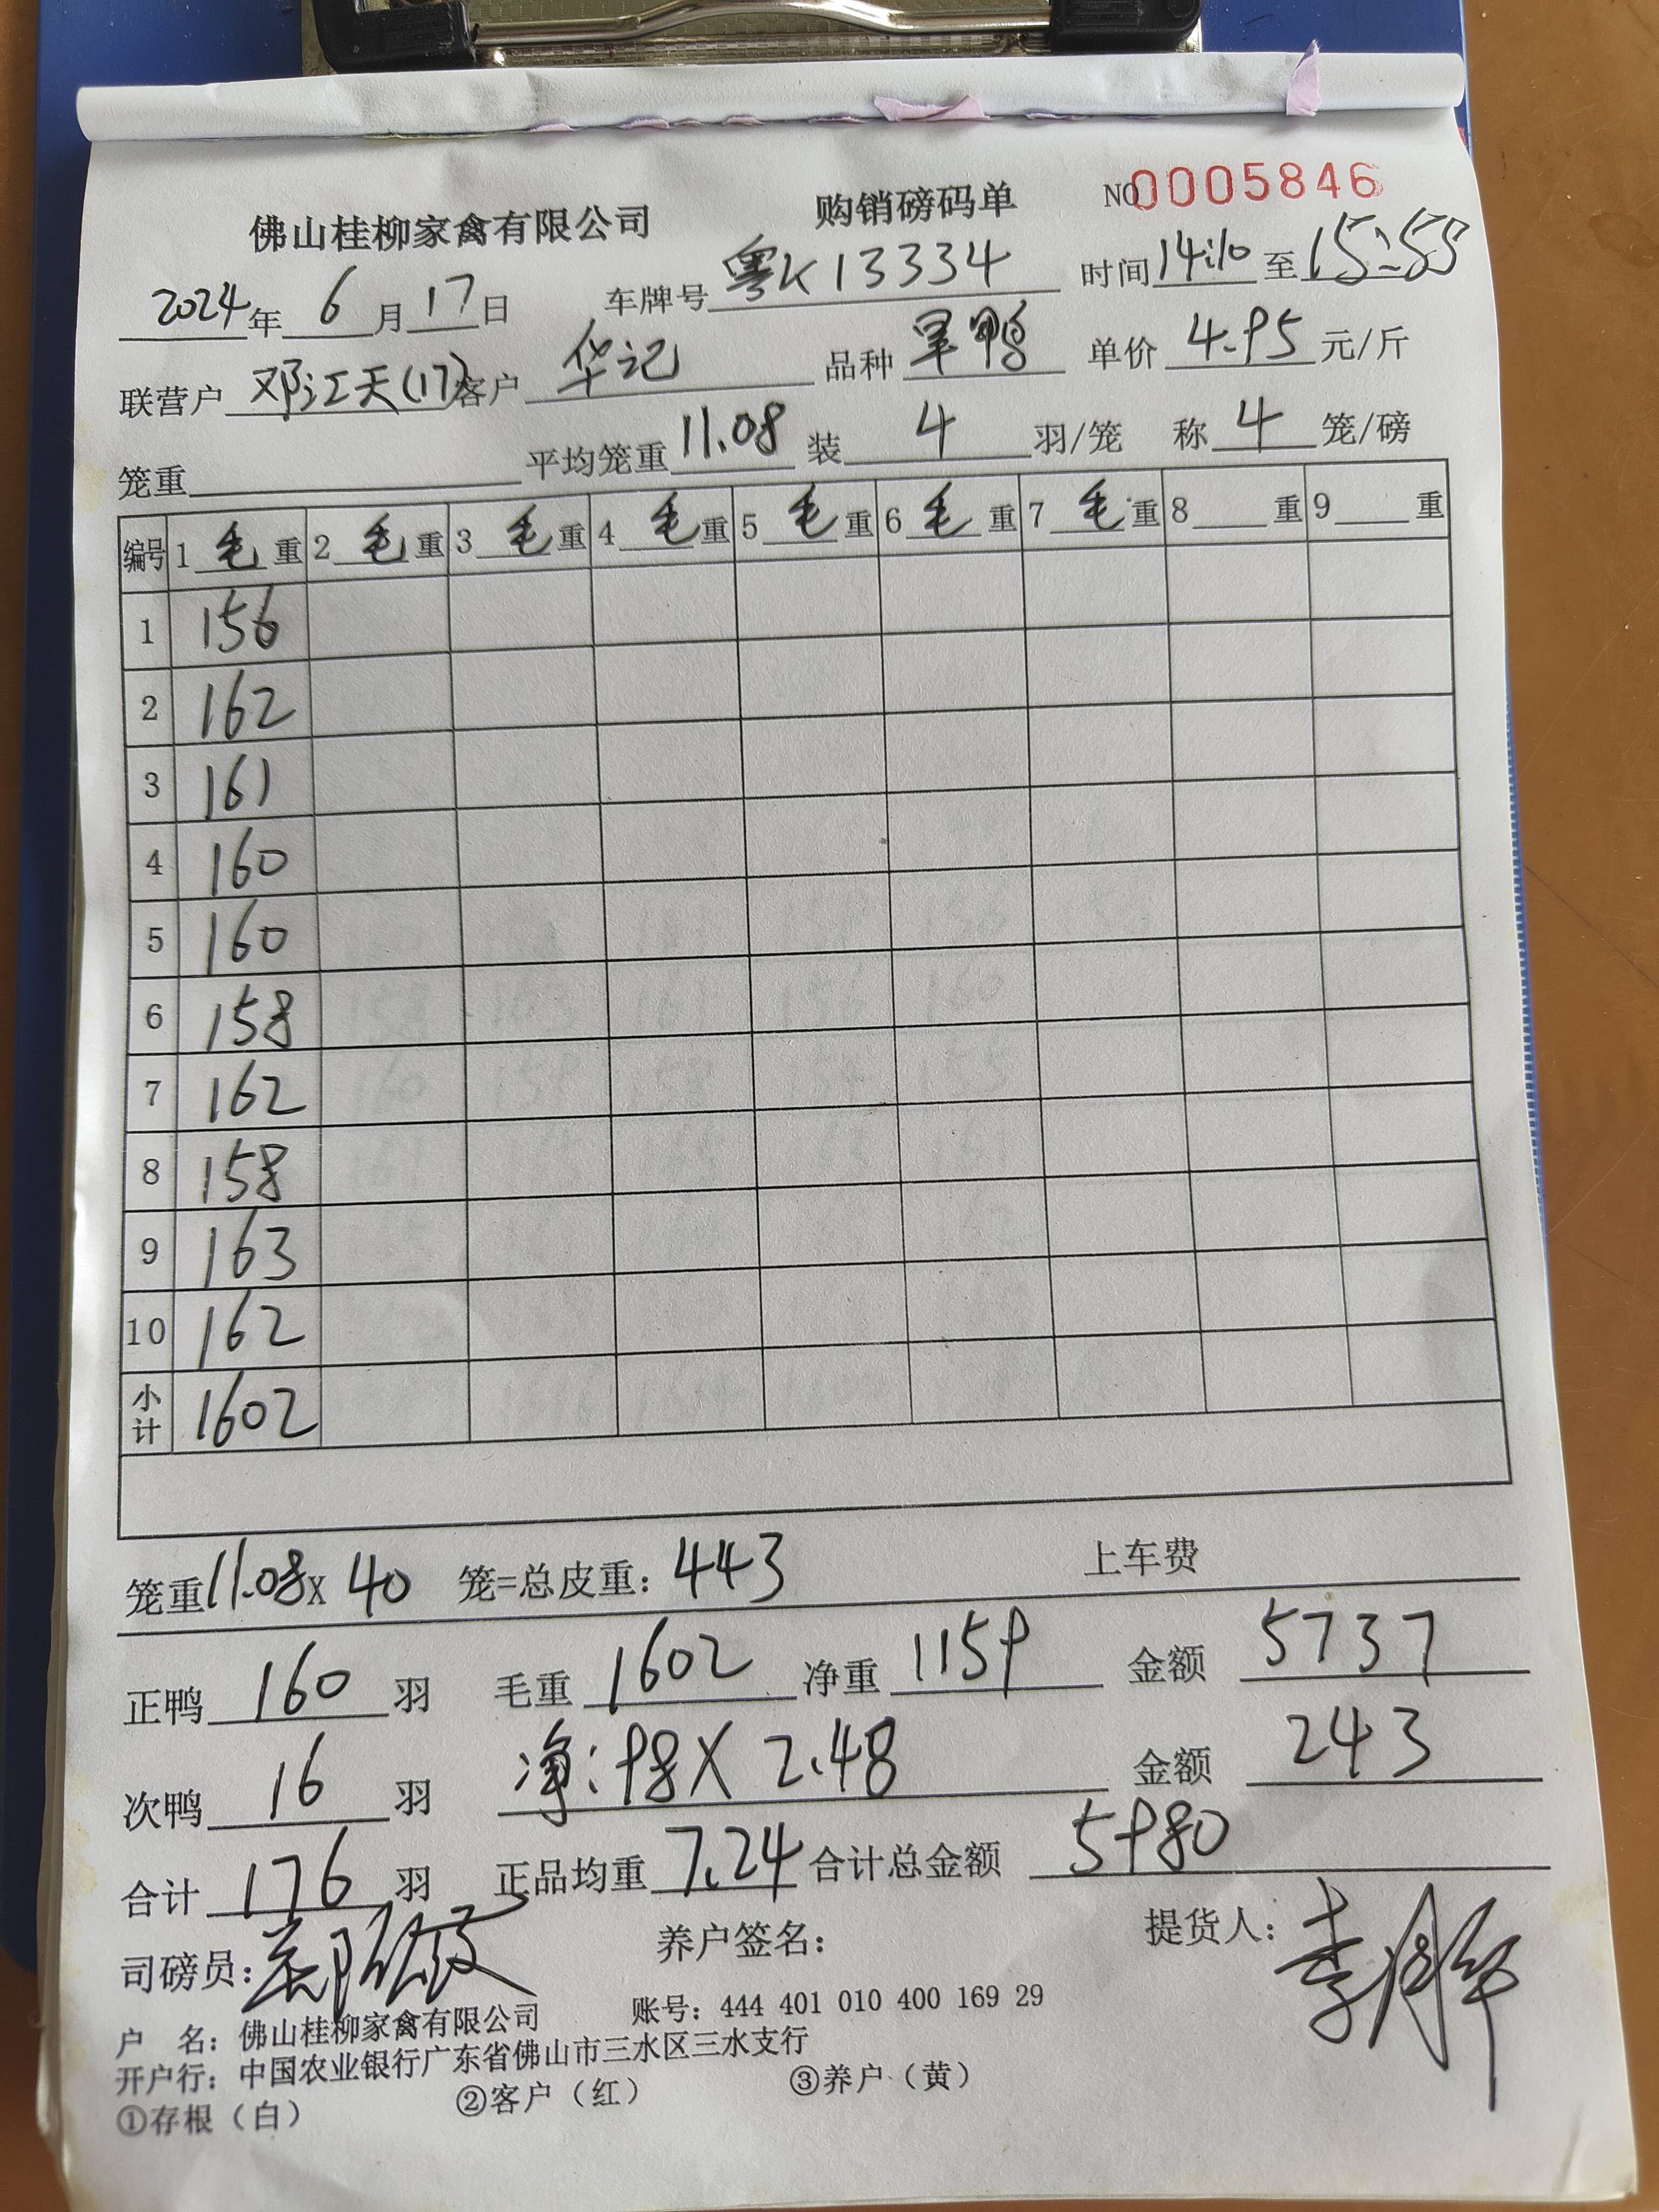 佛山桂柳家禽有限公司 购销磅码单 NO 0005846
2024年 6 月 17 日 车牌号 粤K13334 时间 14:10 至 15:55
联营户 邓江天(17) 客户 华记 品种 旱鸭 单价 4.95 元/斤
笼重 平均笼重 11.08 装 4 羽/笼 称 4 笼/磅
编号 1 毛 重 2 毛 重 3 毛 重 4 毛 重 5 毛 重 6 毛 重 7 毛 重 8 重 9 重
1 156
2 162
3 161
4 160
5 160
6 158
7 162
8 158
9 163
10 162
小计 1602
笼重 11.08 x 40 笼=总皮重: 443 上车费
正鸭 160 羽 毛重 1602 净重 1159 金额 5737
次鸭 16 羽 净: 98 X 2.48 金额 243
合计 176 羽 正品均重 7.24 合计总金额 5980
司磅员: 养户签名: 提货人:
户 名: 佛山桂柳家禽有限公司 账号: 444 401 010 400 169 29
开户行: 中国农业银行广东省佛山市三水区三水支行
①存根（白） ②客户（红） ③养户（黄）